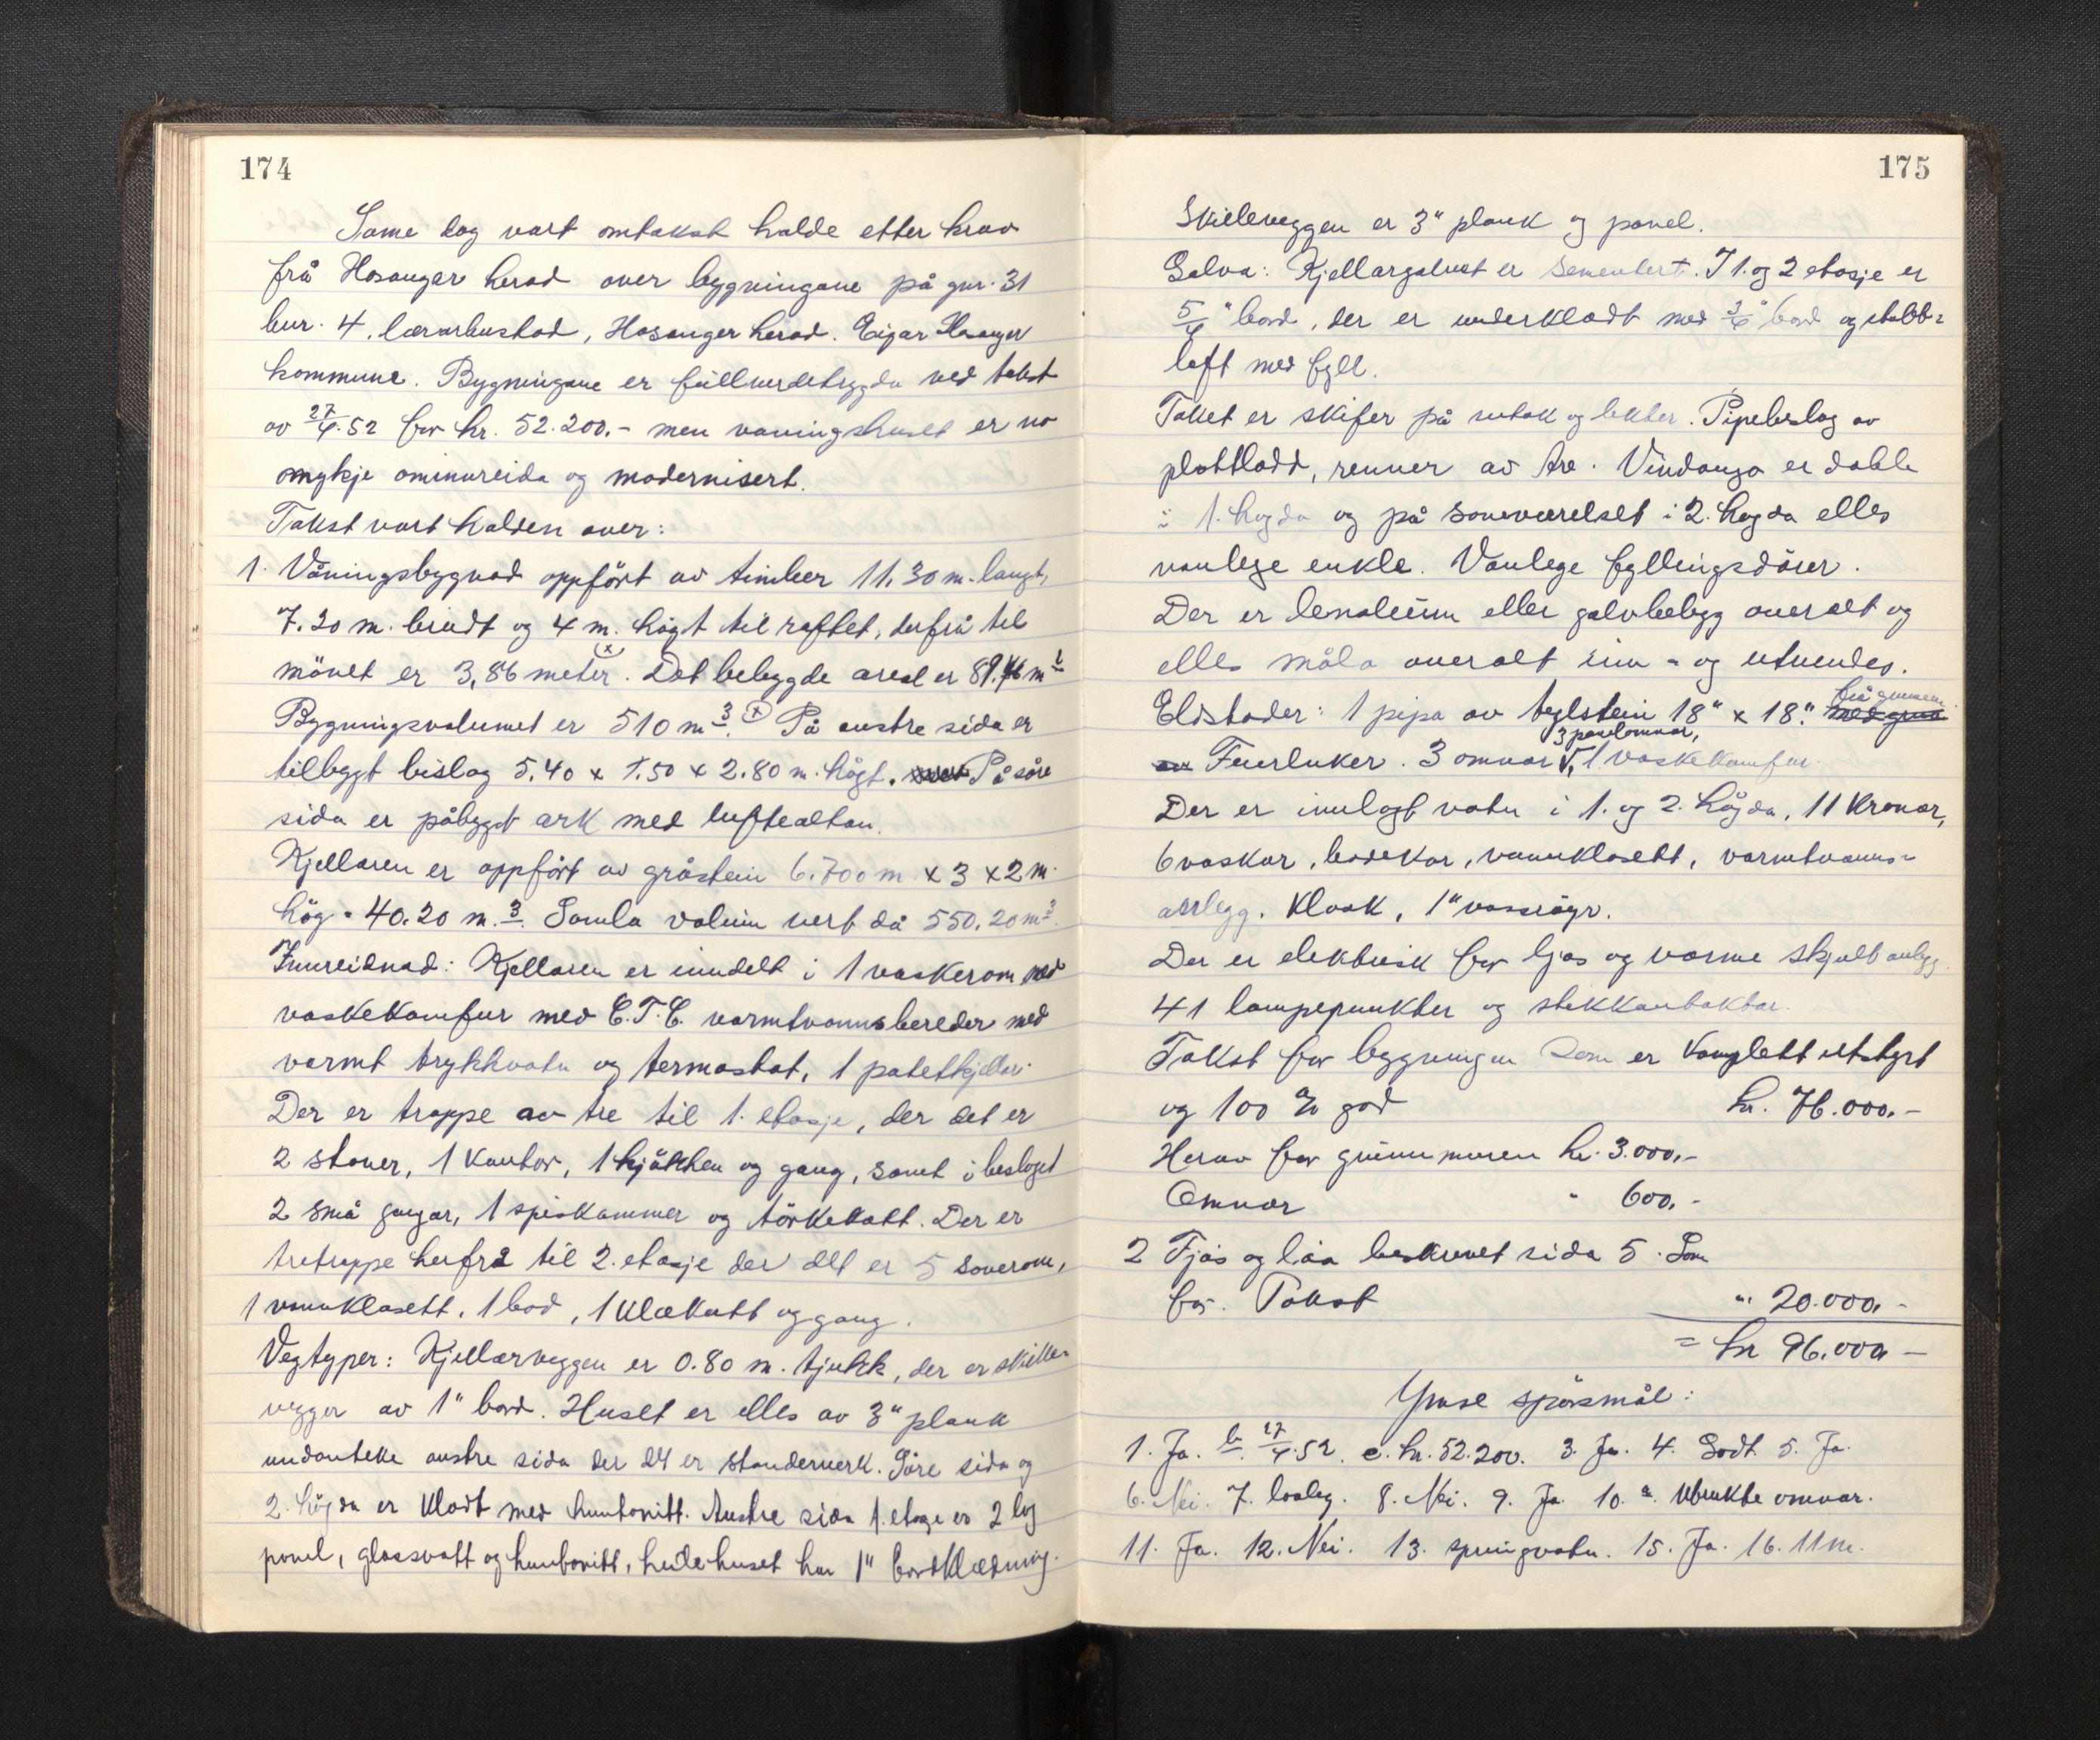 174
Same dag vart omtakst halde etter krav
frå Hosanger herad over bygningane på gnr. 31
bnr. 4, lærarbustad, Hosanger herad. Eigar Hosanger
kommune. Bygningane er fullverdetrygda ved takst
av 27/6.52 for kr. 52.200,- men våningshuset er no
mykje ominnreida og modernisert.
Takst vart halden over:
1. Våningsbygnad oppført av timber 11.30 m. langt,
7.20 m. breidt og 4 m. høgt til raftet, derfrå til
mönet er 3,86 meter. (x) Det bebygde areal er 89.46 m²
Bygningsvolumet er 510 m³. (x) På austre sida er
tilbygt bislag 5.40 x 1.50 x 2.80 m. høgt. På søre
sida er påbygt ark med luftealtan.
Kjellaren er oppført av gråstein 6.700 m x 3 x 2 m.
høg = 40.20 m.³. Samla volum vert då 550.20 m³.
Innreidnad: Kjellaren er inndelt i 1 vaskerom med
vaskekomfur med C.T.C. varmtvannsbereder med
varmt trykkvatn og termostat, 1 potetkjellar.
Der er trappe av tre til 1. etasje, der det er
2 stover, 1 kontor, 1 kjøkken og gang, samt i beslaget
2 små gangar, 1 spiskammer og tørkekott. Der er
tretrappe herfrå til 2. etasje der det er 5 soverom,
1 vannklosett, 1 bod, 1 klækott og gang.
Vegtyper: Kjellarveggen er 0.80 m. tjukk, der er skille
vegger av 1" bord. Huset er elles av 3" plank
undanteke austre sida der det er standerverk. Søre sida og
2. høgda er kledt med huntonitt. Austre sida 1. etasje er 2 lag
panel, glassvatt og huntonitt, heile huset har 1" bordklædning.
175
Skilleveggen er 3" plank og panel.
Golva: Kjellargolvet er sementert. I 1. og 2 etasje er
5/4" bord, der er underkledt med 3/4" bord og stubb=
loft med fyll.
Taket er skifer på sutak og lekter. Pipebeslag av
plattladd, renner av tre. Vindauga er doble
i 1. høgda og på soveværelset i 2. høgda elles
vanlege enkle. Vanlege fyllingsdører.
Der er lenoleum eller golvbelegg overalt og
elles måla overalt inn- og utvendes.
Eldstader: 1 pipa av teglstein 18" x 18". frå grunnen med grua
Feierluker. 3 omnar, 3 panelomnar, 1 vaskekomfur.
Der er innlagt vatn i 1. og 2. høgda, 11 kranar,
6 vaskar, badekar, vannklosett, varmtvanns=
anlegg. Kloak, 1" vassrøyr.
Der er elektrisk for ljos og varme skjult anlegg.
41 lampepunkter og stikkontaktar.
Takst for bygningen som er komplett utstyrt
og 100 % god kr. 76.000.-
Herav for grunnmuren kr. 3.000,-
Omnar " 600.-
2 Fjøs og løa beskrevet sida 5. Som
før. Takst " 20.000.-
= kr 96.000 -
Ymse spørsmål:
1. Ja. b 27/6.52. c. kr. 52.200. 3. Ja. 4. Godt. 5. Ja.
6. Nei. 7. losleg. 8. Nei. 9. Ja. 10. a. Ubrukte omnar.
11. Ja. 12. Nei. 13. springvatn. 15. Ja. 16. 11 m.